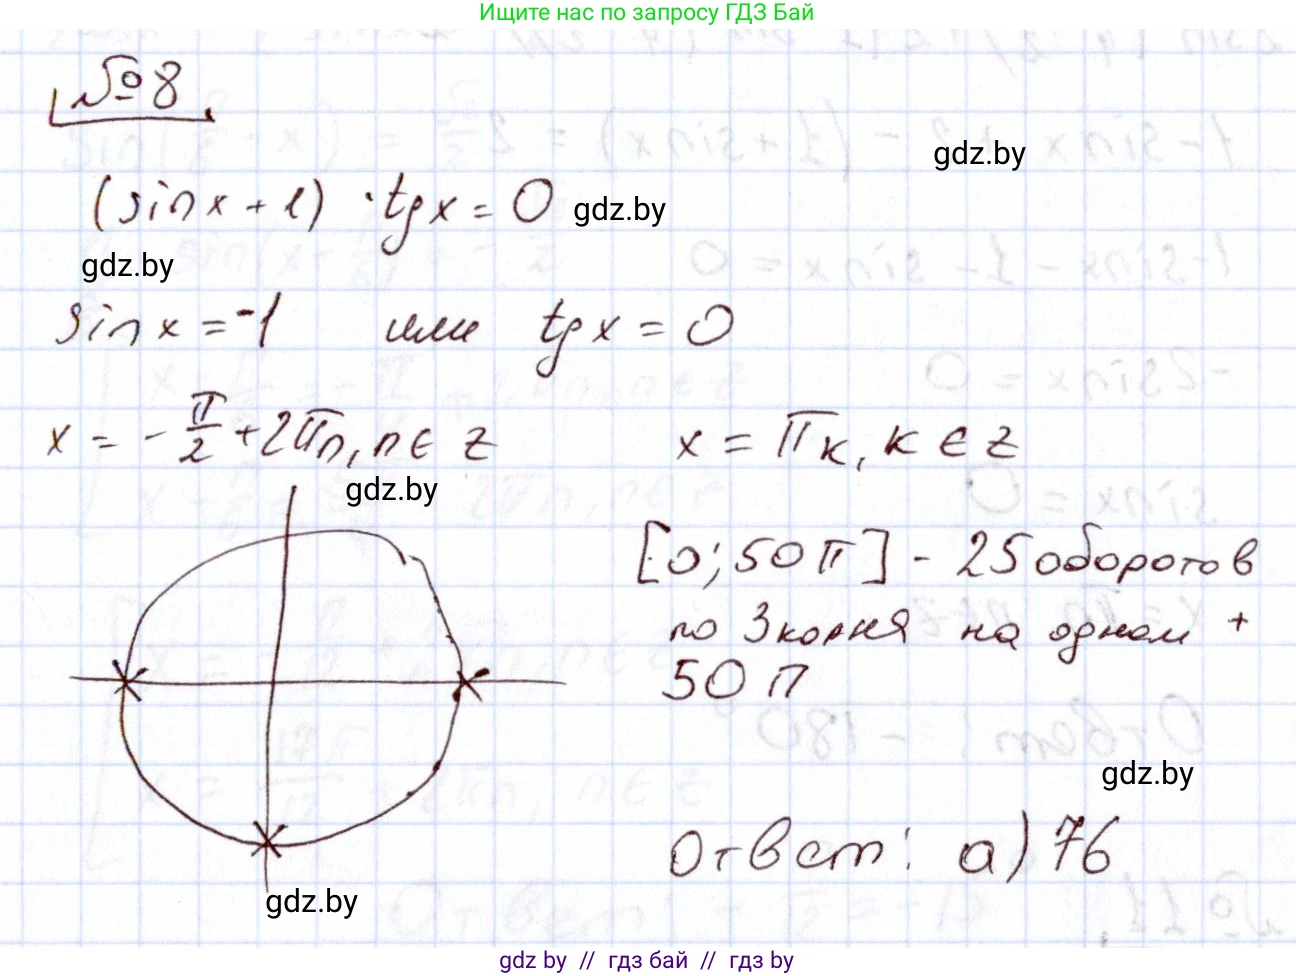 Ищите нас по запросу ГДЗ Бай
№8
gdz.by
(sin x + 1) · tg x = 0 gdz.by
gdz.by
sin x = -1 или tg x = 0
x = - π/2 + 2πn, n ∈ Z x = πk, k ∈ Z
gdz.by
[0; 50π] - 25 оборотов
по 3 корня на одном +
50 π
gdz.by
Ответ: а) 76
gdz.by
gdz by // гдз бай // гдз by